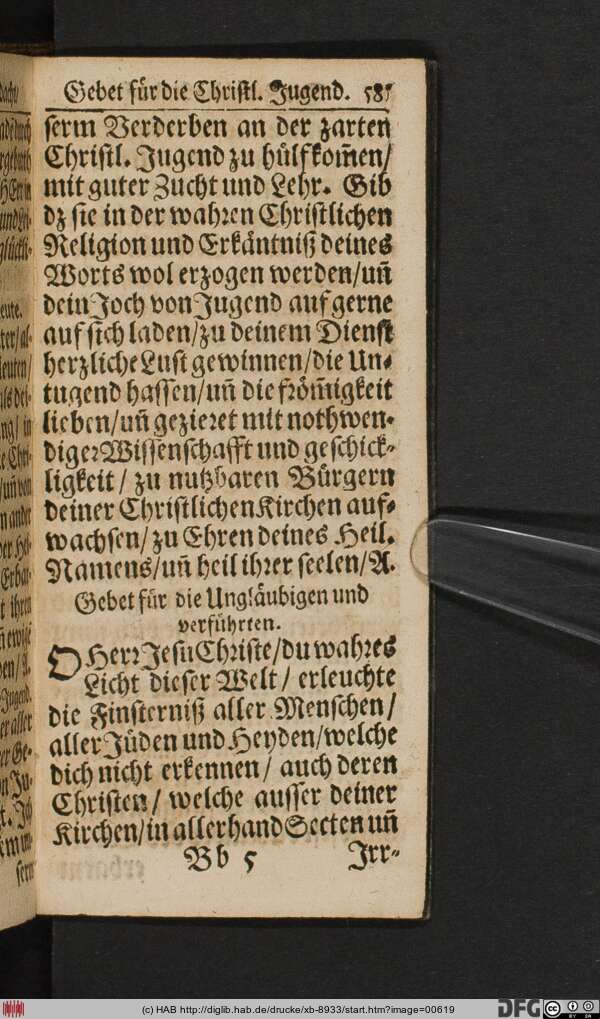 Gebet für die Christl. Jugend. 585
serm Verderben an der zarten
Christl. Jugend zu hülfkom̃en/
mit guter Zucht und Lehr. Gib
dz sie in der wahren Christlichen
Religion und Erkäntniß deines
Worts wol erzogen werden/uñ
dein Joch von Jugend auf gerne
auf sich laden/zu deinem Dienst
herzliche Lust gewinnen/die Un-
tugend hassen/uñ die from̃igkeit
lieben/uñ gezieret mit nothwen-
diger Wissenschafft und geschick-
ligkeit/ zu nutzbaren Bürgern
deiner Christlichen Kirchen auf-
wachsen/zu Ehren deines Heil.
Namens/uñ heil ihrer seelen/A.
Gebet für die Ungläubigen und
verführten.
O Herr Jesu Christe/du wahres
Licht dieser Welt/ erleuchte
die Finsterniß aller Menschen/
aller Jüden und Heyden/welche
dich nicht erkennen/ auch deren
Christen/ welche ausser deiner
Kirchen/in allerhand Secten uñ
Bb 5 Irr-
(c) HAB http://diglib.hab.de/drucke/xb-8933/start.htm?image=00619
DFG